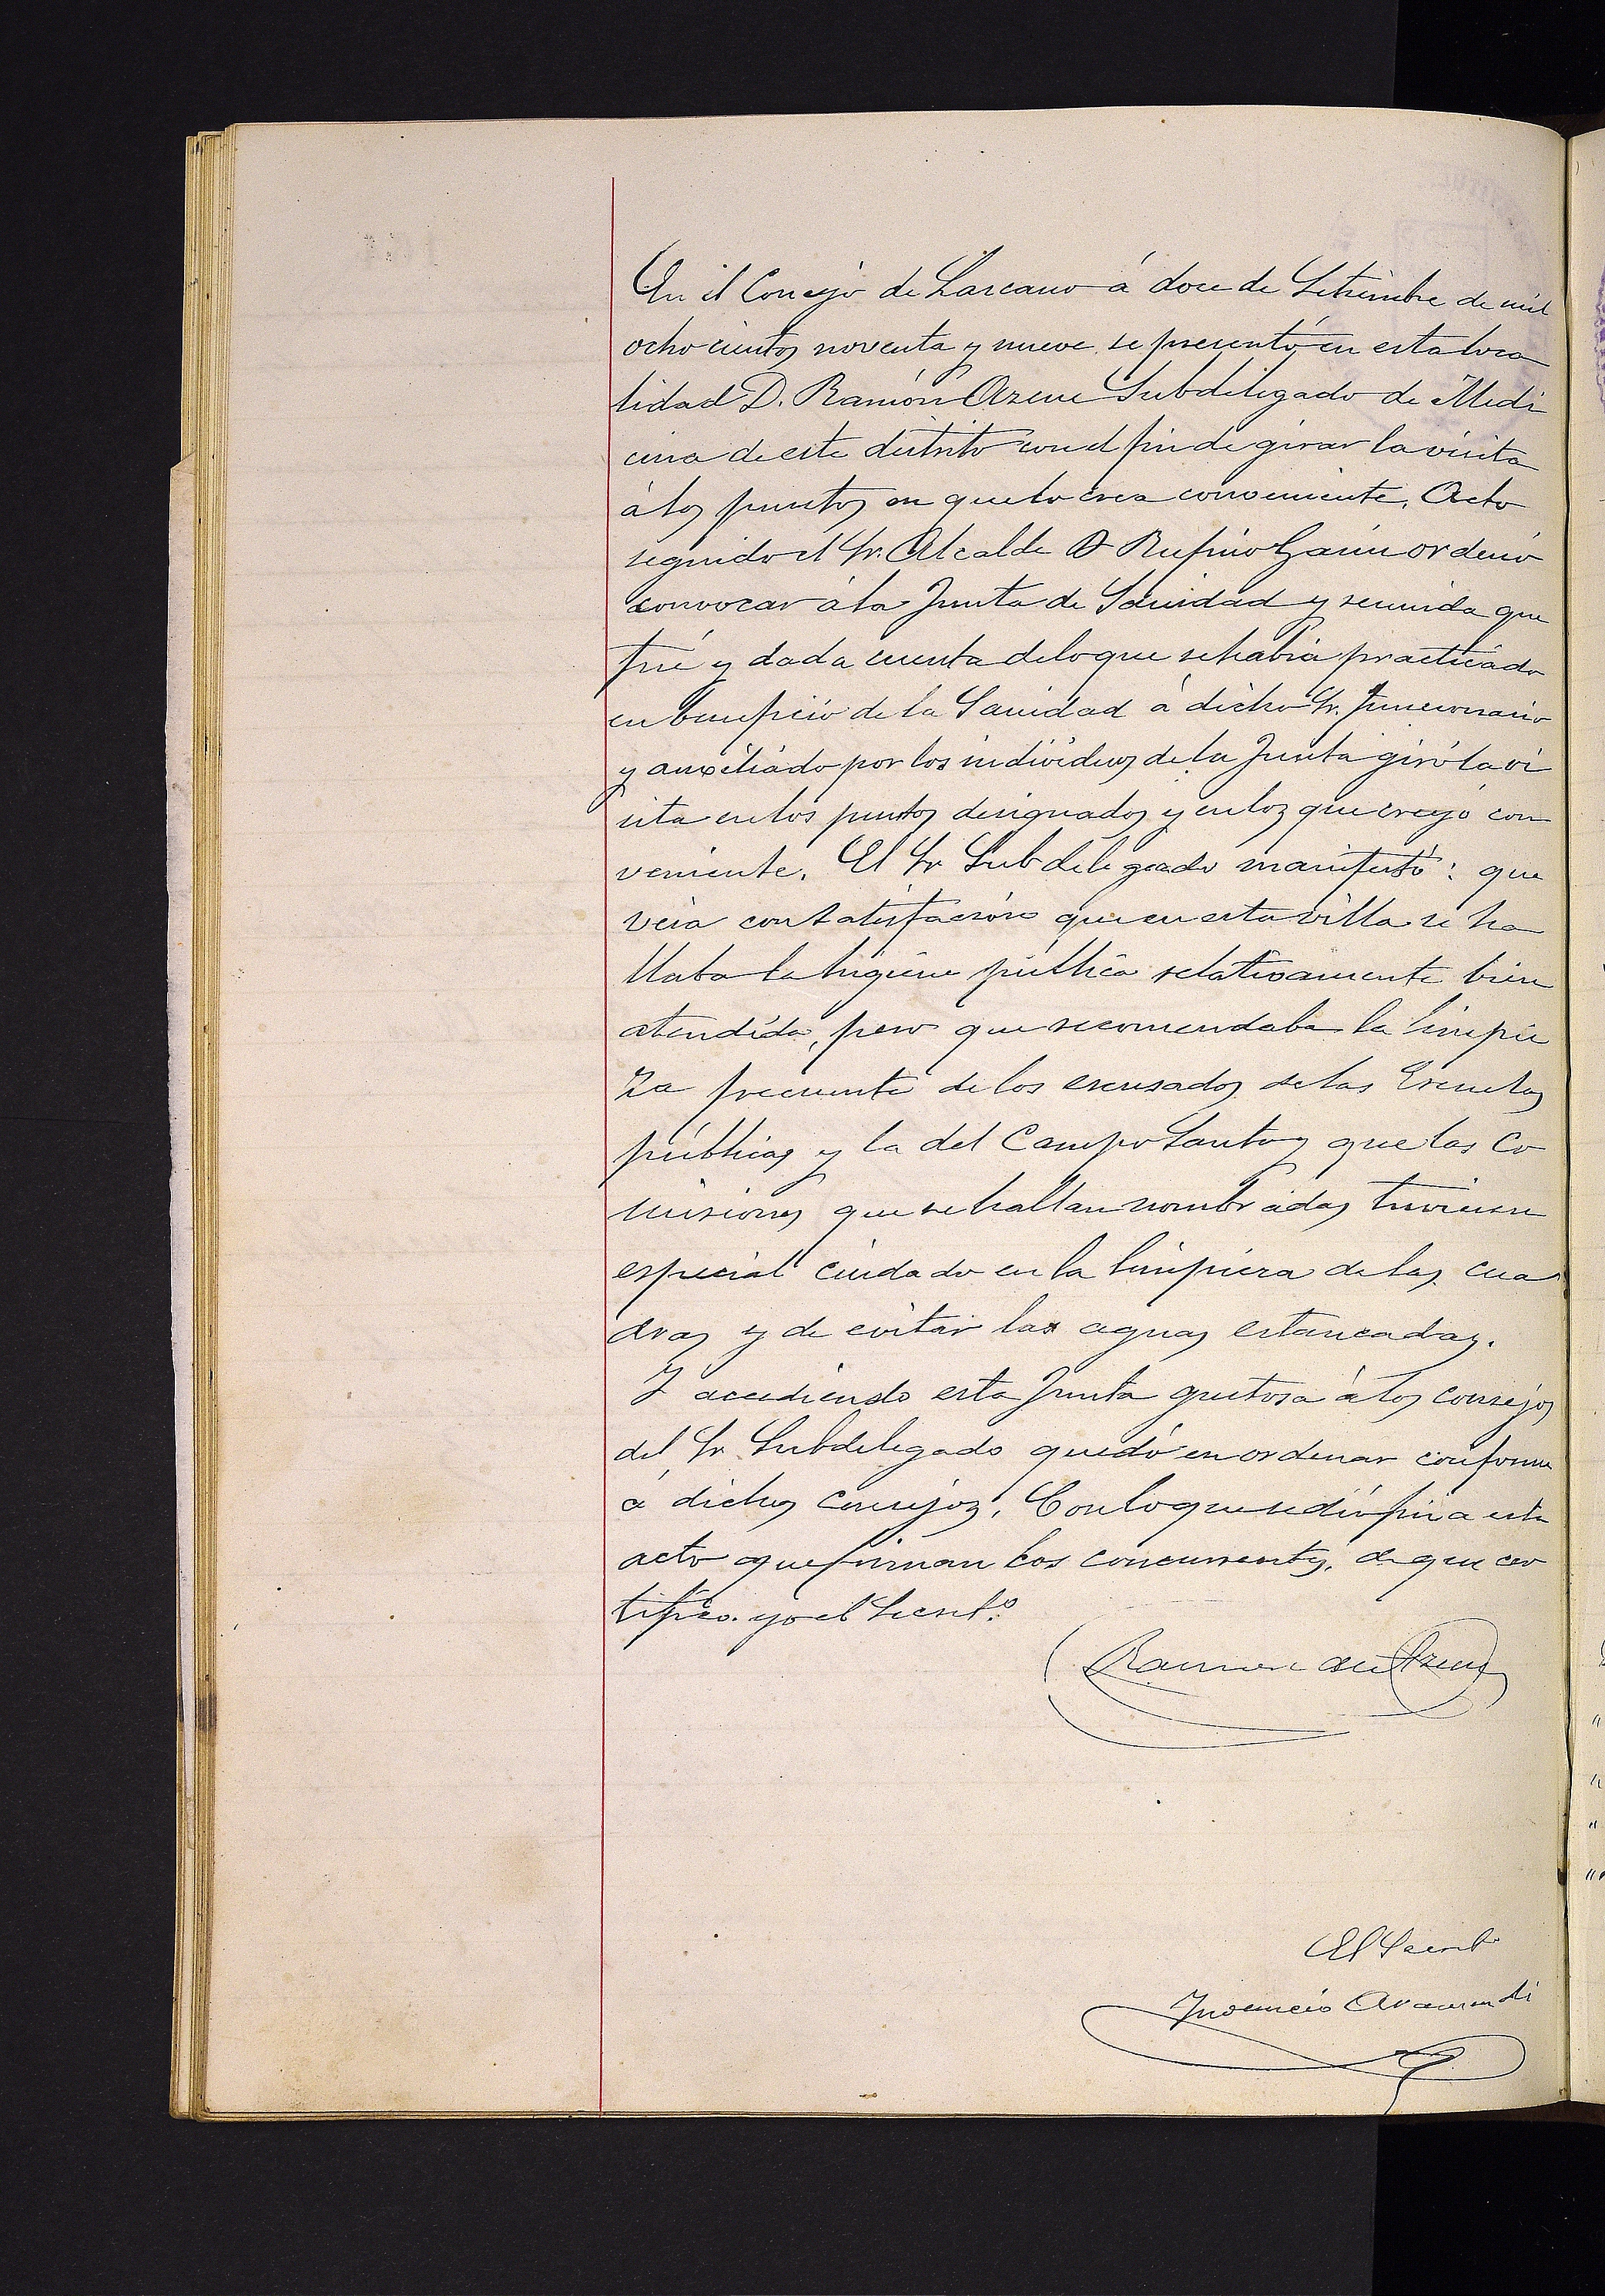 En el Concejo de Lazcano á doce de Setiembre de mil
ochocientos noventa y nueve se presentó en esta loca
lidad D. Ramón Azcue Subdelegado de Medi
cina de este distrito con el fin de girar la visita
á los puntos en que lo crea conveniente. Acto
seguido el Sr. Alcalde D Rufino ordenó
convocar á la Junta de Sanidad y reunida que
fué y dada cuenta de lo que se habia practicado
en beneficio de la Sanidad á dicho Sr. funcionario
y auxiliado por los individuos de la Junta giró la vi
sita en los puntos designados y en los que creyó con
veniente. El Sr Subdelegado manifestó: que
veia con satisfación que en esta villa se ha
llaba la higiene pública relativamente bien
atendida, pero que recomendaba la limpie
za frecuente de los escusados de las Escuelas
públicas y la del Campo Santo y que las Co
misiones que se hallan nombradas tuviesen
especial cuidado en la limpieza de las cua
dras y de evitar las aguas estancadas.
Y accediendo esta Junta gustosa á los consejos
del Sr Subdelegado quedó en ordenar conforme
á dichos consejos. Con lo que se dió fin a este
acto que firman los concurrentes, de que cer
tifico yo el Secret.º
Ramon de Azcue
El Secret.º
Inocencio Aramendi